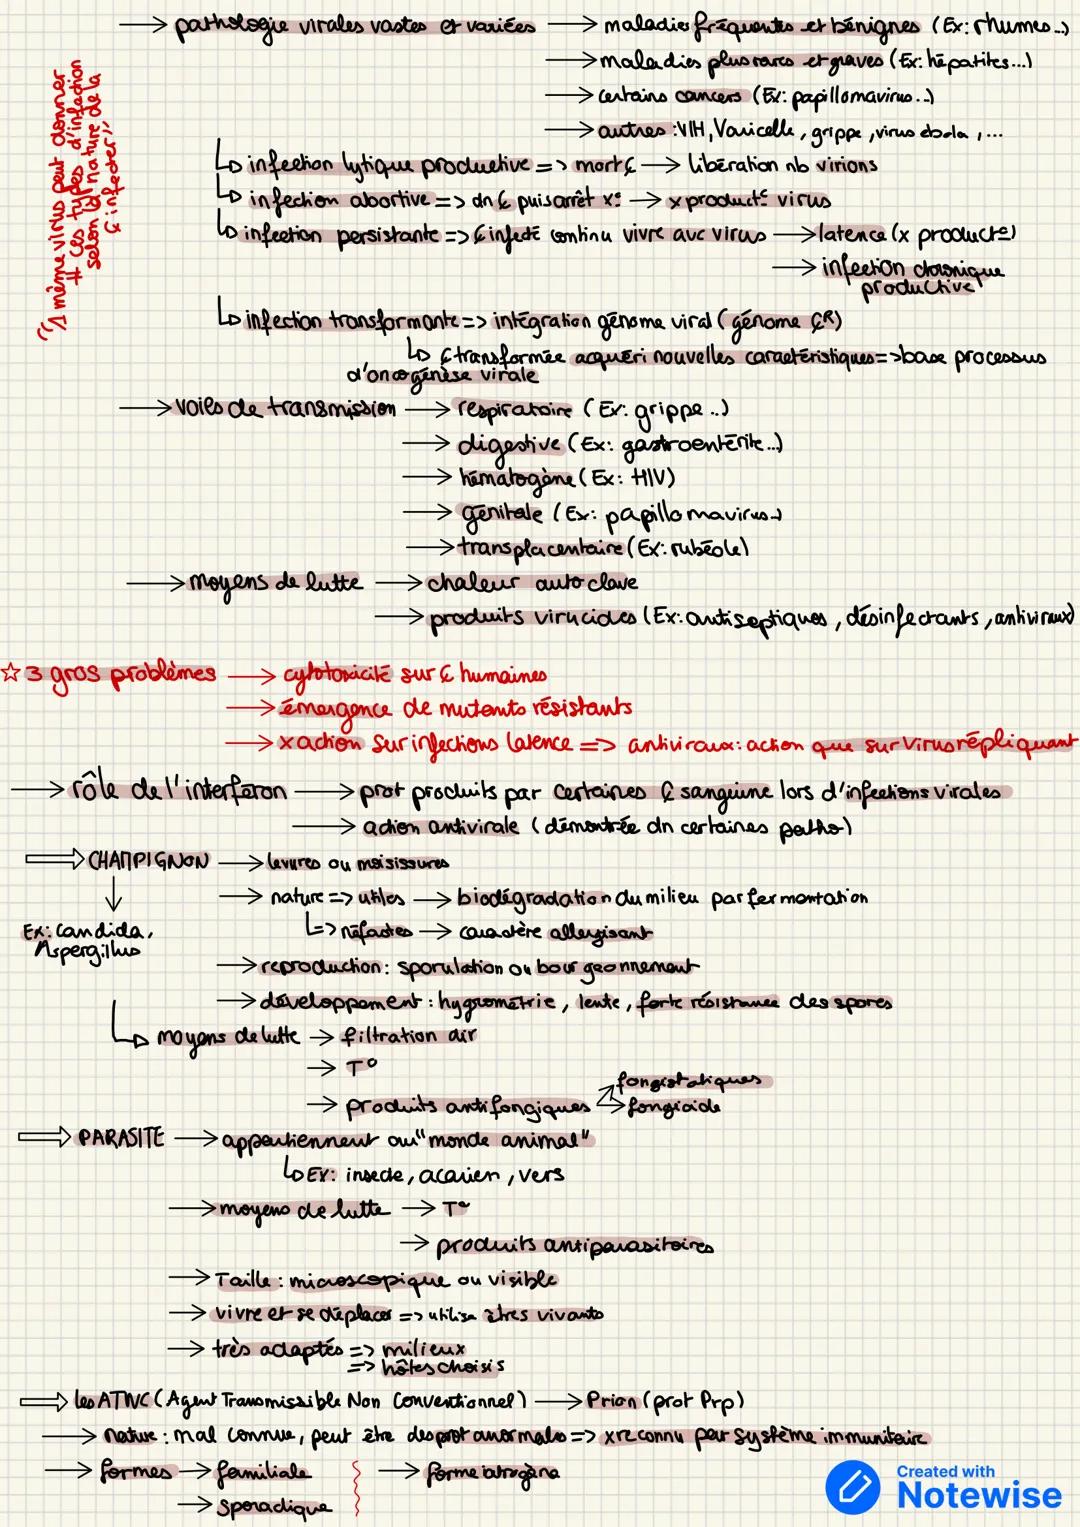 → pathologie virales vastes et variées → maladies fréquentes et bénignes (Ex: rhumes...)
→ maladies plus rares et graves (Ex: hépatites...)
→ certains cancers (Ex: papillomavirus...)
→ autres : VIH, Varicelle, grippe, virus ebola, ...
"1 même virus peut donner
≠ ces types d'infection
selon la nature de la
₵ infecter"
↳ infection lytique productive => mort ₵ → libération nb virions
↳ infection abortive => dn ₵ puis arrêt x° → x product° virus
↳ infection persistante => ₵ infecté continu vivre avc virus → latence (x product°)
→ infection chronique
productive
↳ infection transformante => intégration génome viral (génome ₵R)
↳ ₵ transformée acquéri nouvelles caractéristiques => base processus
d'oncogénèse virale
→ voies de transmission → respiratoire (Ex: grippe ..)
→ digestive (Ex: gastroentérite...)
→ hématogène (Ex: HIV)
→ génitale (Ex: papillomavirus..)
→ transplacentaire (Ex: rubéole)
→ moyens de lutte → chaleur autoclave
→ produits virucides (Ex: antiseptiques, désinfectants, antiviraux)
☆ 3 gros problèmes → cytotoxicité sur ₵ humaines
→ émergence de mutants résistants
→ x action sur infections latence => antiviraux: action que sur virus répliquant
→ rôle de l'interferon → prot produits par certaines ₵ sanguine lors d'infections virales
→ action antivirale (démontrée dn certaines patho)
⇒ CHAMPIGNON → levures ou moisissures
→ nature => utiles → biodégradation du milieu par fermentation
↓
Ex: candida,
Aspergillus
↳> néfastes → caractère allergisant
→ reproduction: sporulation ou bourgeonnement
→ développement : hygrométrie, lente, forte résistance des spores
↳ moyens de lutte → filtration air
→ T°
→ produits antifongiques ↗ fongistatiques
→ fongicide
⇒ PARASITE → appartiennent au "monde animal"
↳ Ex: insecte, acarien, vers
→ moyens de lutte → T°
→ produits antiparasitoires
→ Taille : microscopique ou visible
→ vivre et se déplacer => utilise êtres vivants
→ très adaptés => milieux
=> hôtes choisis
⇒ les ATNC (Agent Transmissible Non Conventionnel) → Prion (prot Prp)
→ nature : mal connue, peut être des prot anormales => x reconnu par système immunitaire
→ formes → familiale → forme iatrogène
→ sporadique
Created with
Notewise